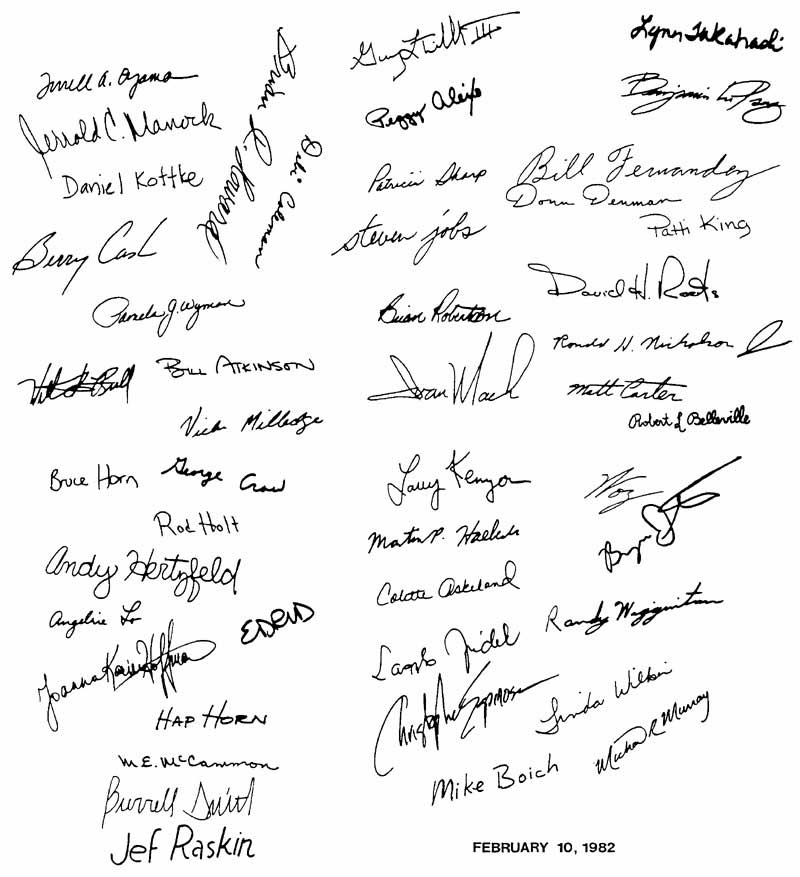 Terrell A. Oyama
Jerrold C. Manock
Daniel Kottke
Brian R. Howard
Debi Coleman
Berry Cash
Pamela J. Wyman
Bill Atkinson
Vicki Milledge
Bruce Horn
George Crow
Rod Holt
Andy Hertzfeld
Angeline Lo
EDRUD
Joanna Karin Hoffman
HAP HORN
M.E. McCammon
Burrell Smith
Jef Raskin
III
Peggy Alexio
Patricia Sharp
steven jobs
Brian Robertson
Ivan Mach
Larry Kenyon
Martin P. Haeberli
Colette Askeland
Laszlo Zidek
Christopher Espinosa
Mike Boich
Lynn Takahashi
Benjamin
Bill Fernandez
Donn Denman
Patti King
David H. Roots
Ronald H. Nicholson Jr
Matt Carter
Robert L Belleville
Woz
Randy Wigginton
Linda Wilkin
Michael R Murray
FEBRUARY 10, 1982